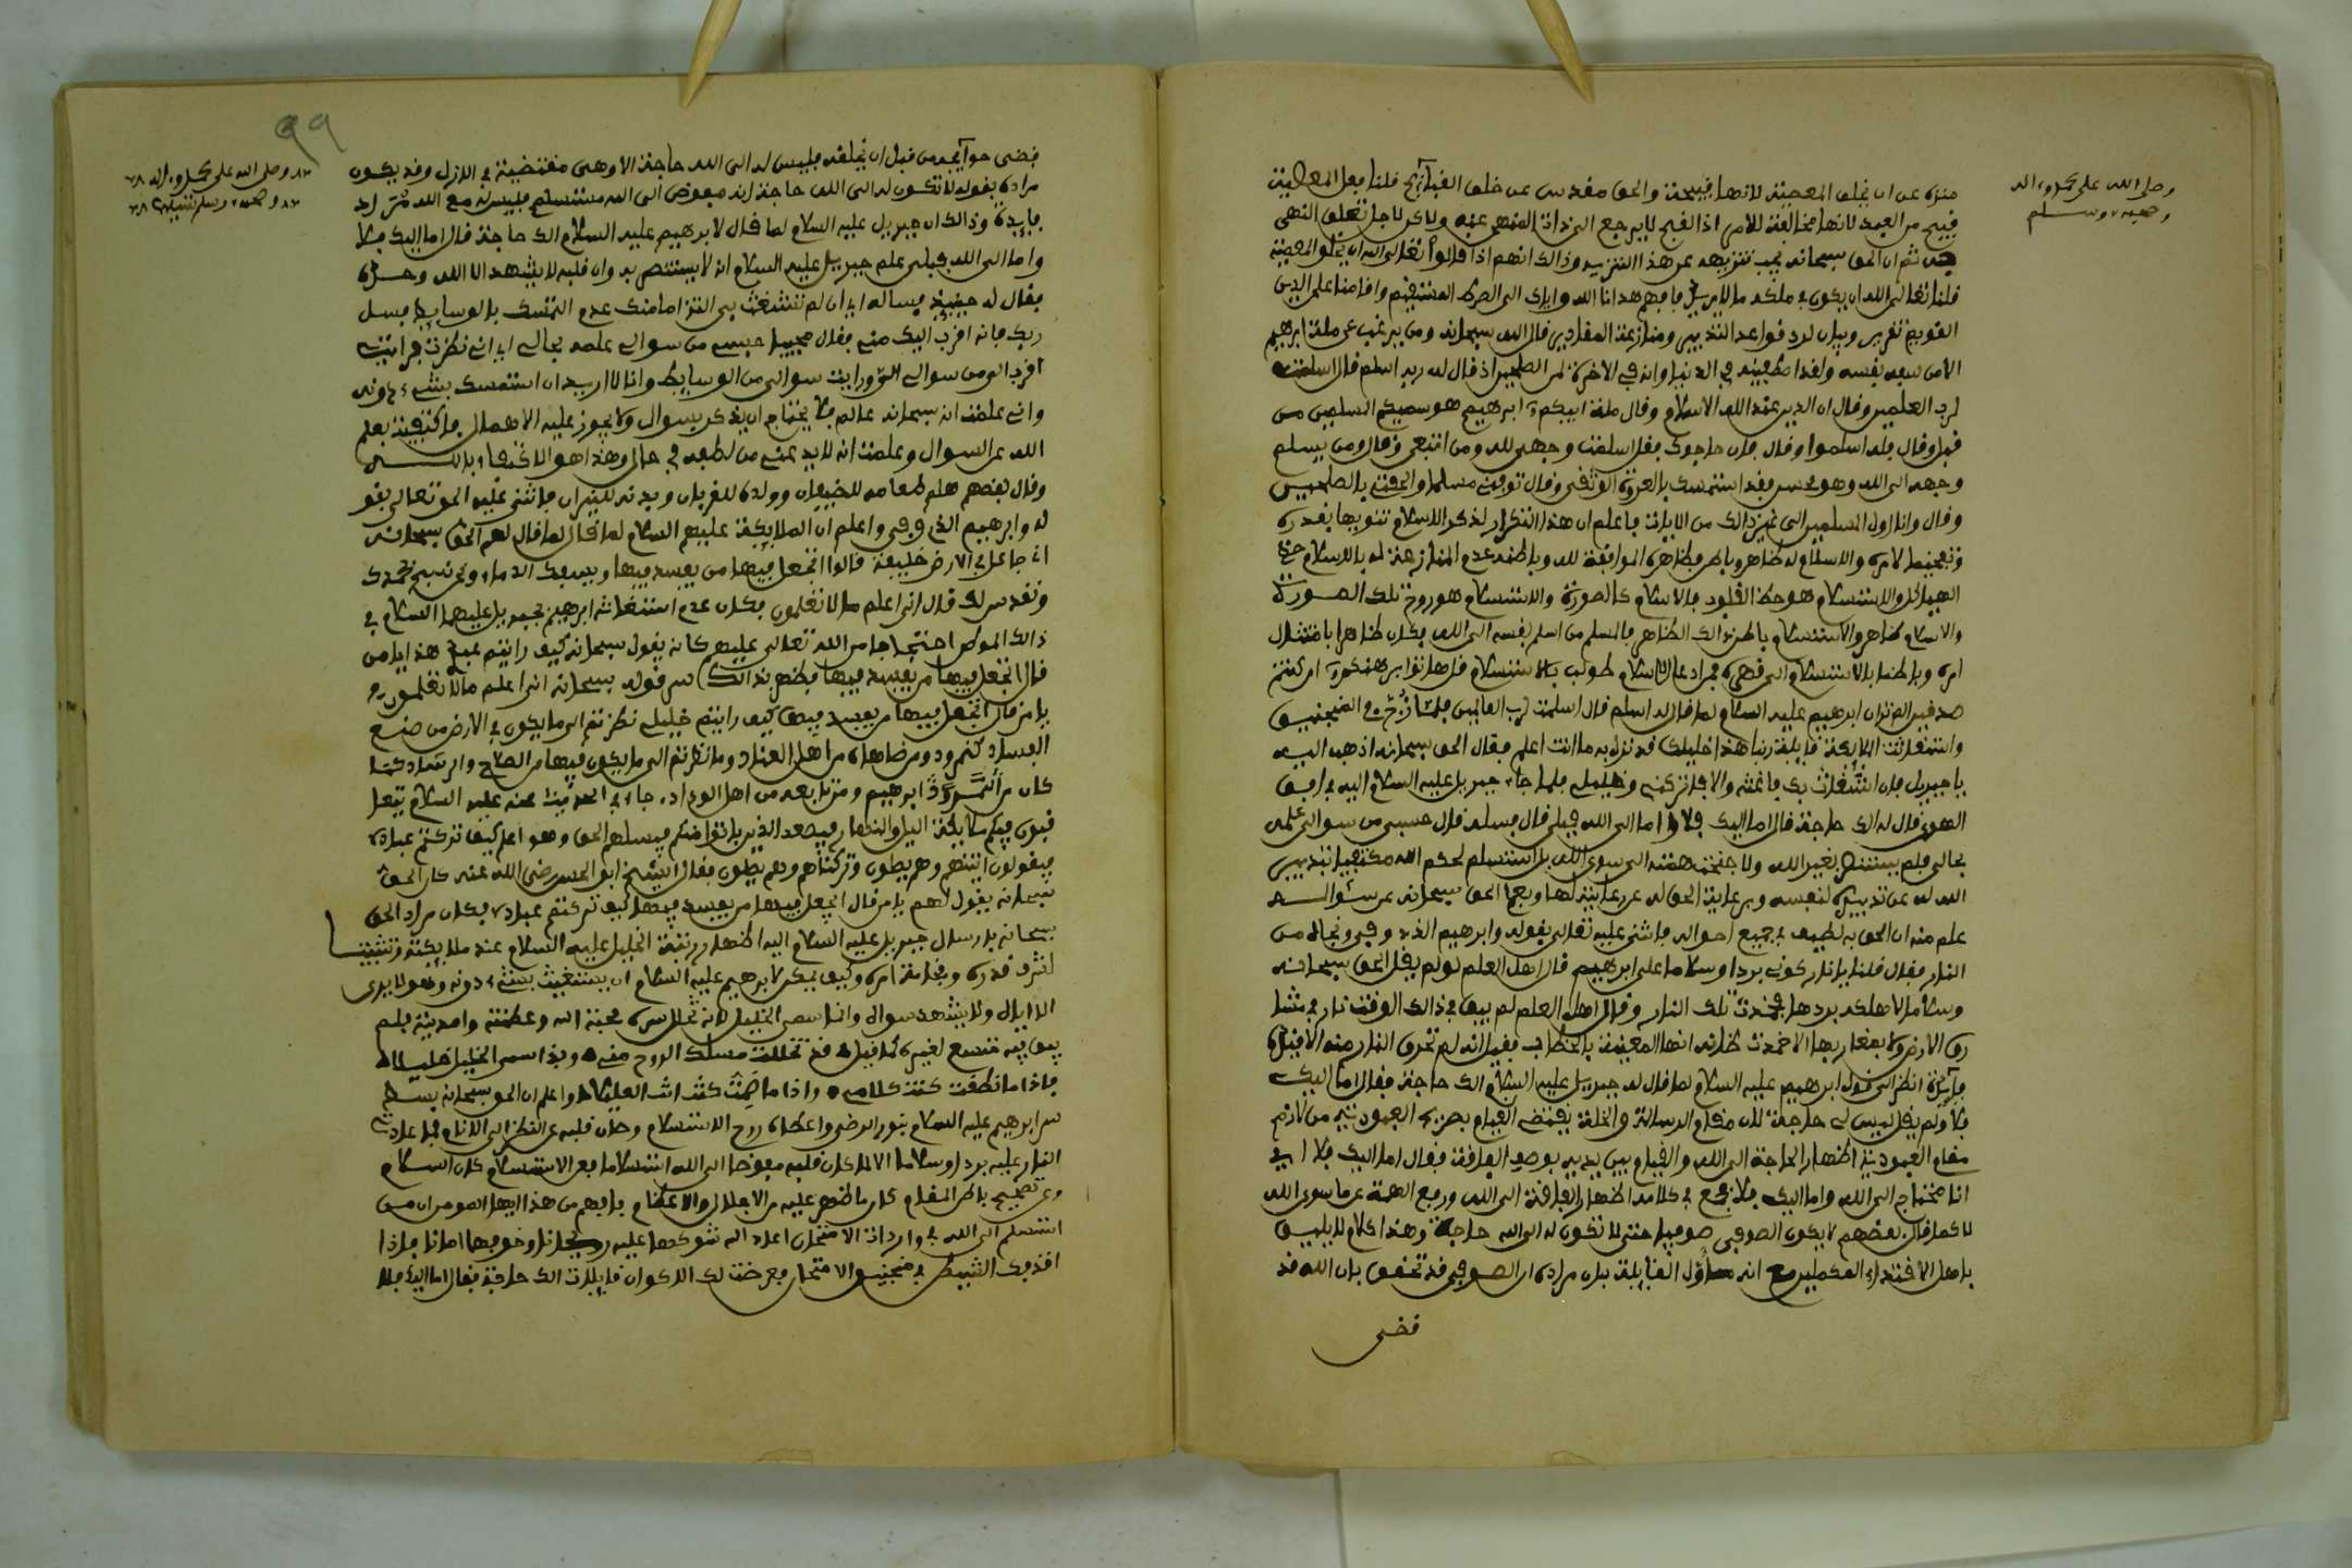 منزه عن ان يخلق المعصية لانها قبيحة والحق مقدس عن خلق القبائح قلنا فعل المعصية
قبيح من العبد لانها مخالفة للامر اذ القبح لا يرجع الى ذات المنهي عنه ولاكن لاجل تعلق النهي
به ثم ان الحق سبحانه يجب تنزيهه عن هذا التنزيه وذالك انهم اذا قالوا تعالى الله ان يخلق المعصية
قلنا تعالى الله ان يكون في ملكه ما لا يريد فافهم هدانا الله واياك الى الصراط المستقيم واقامنا على الدين
القويم تقرير وبيان لرد قواعد التدبير ومنازعة المقادير قال الله سبحانه ومن يرغب عن ملة ابرهيم
الا من سفه نفسه ولقد اصطفينه في الدنيا وانه في الاخرة لمن الصلحين اذ قال له ربه اسلم قال اسلمت
لرب العلمين وقال ان الدين عند الله الاسلام وقال ملة ابيكم ابرهيم هو سميكم المسلمين من
قبل وقال فله اسلموا وقال فان حاجوك فقل اسلمت وجهي لله ومن اتبعن وقال ومن يسلم
وجهه الى الله وهو محسن فقد استمسك بالعروة الوثقى وقال توفني مسلما والحقني بالصلحين
وقال وانا اول المسلمين الى غير ذالك من الايات فاعلم ان هذا التكرار لذكر الاسلام تنويها بقدره
وتفخيما لامره والاسلام له ظاهر وباطن فظاهره الموافقة لله وباطنه عدم المنازعة له فالاسلام حظ
الهياكل والاستسلام هو حظ القلوب فالاسلام كالصورة والاستسلام هو روح تلك الصورة
والاسلام ظاهر والاستسلام باطن ذالك الظاهر فالمسلم من اسلم نفسه الى الله فكان ظاهرا بامتثال
امره وباطنا بالاستسلام الى قهره فمن ادعا الاسلام طولب بالاستسلام قل هاتوا برهنكم ان كنتم
صدقين الا ترى ان ابرهيم عليه السلام لما قال له اسلم قال اسلمت لرب العالمين فلما زج به في المنجنيق
واستغاثت الملايكة قايلة ربنا هذا خليلك قد نزل به ما انت اعلم فقال الحق سبحانه اذهب اليه
يا جبريل فان استغاث بك فاغثه والا فاتركني وخليلي فلما جاءه جبريل عليه السلام اليه في افق
الهوى قال له الك حاجة قال اما اليك فلا واما الى الله فبلى قال فسله قال حسبي من سوالي علمه
بحالي فلم يستنصر بغير الله ولا جنحت همته الى سوى الله بل استسلم لحكم الله مكتفيا بتدبير
الله له عن تدبيره لنفسه وبرعاية الحق له عن رعايته لها وبعلم الحق سبحانه عن سؤاله
علم منه ان الحق به لطيف في جميع احواله فاثنى عليه تعالى بقوله وابرهيم الذي وفى ونجاه من
النار فقال قلنا يا نار كوني بردا وسلاما على ابرهيم قال اهل العلم لو لم يقل الحق سبحانه
وسلاما لاهلكه بردها فخمدت تلك النار وقال اهل العلم لم يبق في ذالك الوقت نار في مشارق
الارض ولا بمغاربها الا خمدت ظانة انها المعنية بالخطاب فقيل انه لم تحرق النار منه الا قيده
فايدة انظر الى قول ابرهيم عليه السلام لما قال له جبريل عليه السلام الك حاجة فقال اما اليك
فلا ولم يقل ليس لي حاجة لان مقام الرسالة والخلة يقتضي القيام بصريح العبودية ومن لازم
مقام العبودية اظهار الحاجة الى الله والقيام بين يديه بوصف الفاقة فقال اما اليك فلا اي
انا محتاج الى الله واما اليك فلا فجمع في كلامه اظهار الفاقة الى الله ورفع الهمة عن ما سوى الله
لا كما قال بعضهم لا يكون الصوفي صوفيا حتى لا تكون له الى الله حاجة وهذا كلام لا يليق
باهل الاقتداء المكملين مع انه مأول لقايله بان مراده ان الصوفي قد تحقق بان الله قد
قضى
وصلى الله على محمد واله
وصحبه وسلم
٩٩
قضى حوايجه من قبل ان يخلقه فليس له الى الله حاجة الا وهي مقضية في الازل وقد يكون
مراده بقوله لا تكون له الى الله حاجة انه مفوض الى الله مستسلم فليس له مع الله مراد
فايدة وذالك ان جبريل عليه السلام لما قال لابرهيم عليه السلام الك حاجة قال اما اليك فلا
واما الى الله فبلى علم جبريل عليه السلام انه لا يستنصر به وان قلبه لا يشهد الا الله وحده
فقال له حينيذ فساله اي ان لم تستغث بي التزاما منك عدم التمسك بالوسايط فسل
ربك فانه اقرب اليك مني فقال مجيبا حسبي من سوالي علمه بحالي اي اني نظرت فرايته
اقرب الي من سوالي ورايت سوالي من الوسايط وانا لا اريد ان استمسك بشيء دونه
واني علمت انه سبحانه عالم فلا يحتاج ان يذكر بسوال ولا يجوز عليه الاهمال فاكتفيت بعلم
الله عن السوال وعلمت انه لا يدعني من لطفه في حال وهذا هو الاكتفاء بالله
وقال بعضهم سلم طعامه للضيفان وولده للقربان وبدنه للنيران فاثنى عليه الحق تعالى بقو
له وابرهيم الذي وفى واعلم ان الملايكة عليهم السلام لما قال لهم الحق سبحانه
اني جاعل في الارض خليفة قالوا اتجعل فيها من يفسد فيها ويسفك الدماء ونحن نسبح بحمدك
ونقدس لك قال اني اعلم ما لا تعلمون فكان عدم استغاثة ابرهيم بجبريل عليهما السلام في
ذالك الموطن احتجاجا من الله تعالى عليهم كانه يقول سبحانه كيف رايتم عبدي هذا يا من
قال اتجعل فيها من يفسد فيها فظهر بذالك سر قوله سبحانه اني اعلم ما لا تعلمون
يا من قال اتجعل فيها من يفسد فيها كيف رايتم خليلي نظرتم الى ما يكون في الارض من صنع
الفساد كنمرود ومن ضاهاه من اهل العناد وما نظرتم الى ما يكون فيها من الصلاح والرشاد كما
كان من ابرهيم ومن تابعه من اهل الوداد جاء في الحديث عنه عليه السلام يتعا
قبون فيكم ملايكة اليل والنهار فيصعد الذين باتوا فيكم فيسلهم الحق وهو اعلم كيف تركتم عبادي
فيقولون اتينهم وهم يصلون وتركناهم وهم يصلون فقال الشيخ ابو الحسن رضي الله عنه كان الحق
سبحانه يقول لهم يا من قال اتجعل فيها من يفسد فيها كيف تركتم عبادي فكان مراد الحق
سبحانه بارسال جبريل عليه السلام اليه اظهار رتبة الخليل عليه السلام عند ملايكته وتثبيتا
لشرف قدره وفخامة امره وكيف يمكن لابرهيم عليه السلام ان يستغيث بشيء دونه وهو لا يرى
الا اياه ولا يشهد سواه وانما سمي الخليل لانه تخلل سره محبة الله وعظمته واحديته فلم
يبق فيه متسع لغيره كما قيل قد تخللت مسلك الروح مني وبذا سمي الخليل خليلا
فاذا ما نطقت كنت كلامي واذا ما صمت كنت انت الغليلا واعلم ان الحق سبحانه
سر ابرهيم عليه السلام بنور الرضى واعطاه روح الاستسلام وصان قلبه عن النظر الى الانام فما عادت
النار عليه بردا وسلاما الا لما كان قلبه مفوضا الى الله استسلاما فعن الاستسلام كان السلام
وعن تصحيح باطن المقام كان ما ظهر عليه من الاجلال والاعظام فافهم من هذا ايها المومن ان من
استسلم الى الله في واردات الامتحان اعاد الله شوكها عليه ريحانا وخوفها امانا فاذا
اقذفك الشيطان في منجنيق الامتحان فعرضت لك الاكوان قايلة الك حاجة فقال اما اليك فلا
وصلى الله على محمد واله
وصحبه وسلم تسليما